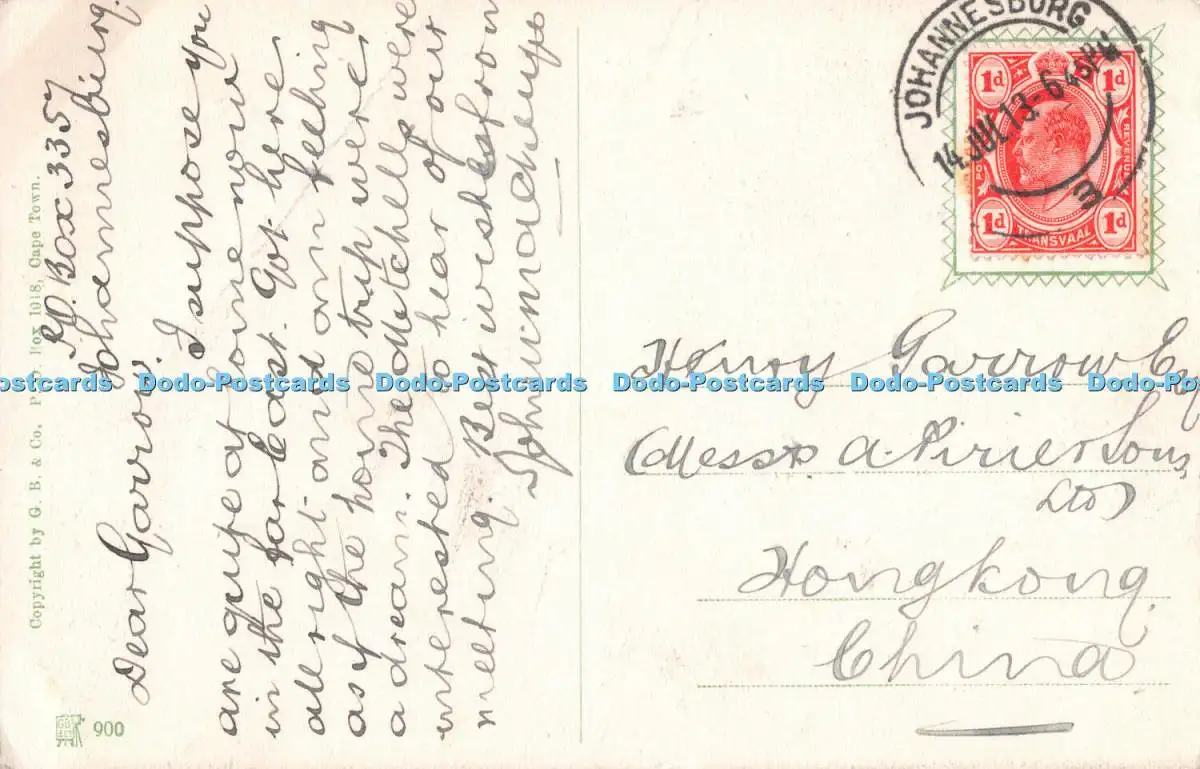 P.O. Box 3357
Johannesburg.
Dear Garrow.
I suppose you
are quite at home now
in the far East. Got here
allright and am feeling
as if the home trip were
a dream. The Mitchells were
interested to hear of our
meeting. Best wishes from
John
Copyright by G. B. & Co. P. O. Box 1918, Cape Town.
900
JOHANNESBURG
14 JUL 13 - 6 45 PM
3
1d 1d
POSTAGE REVENUE
1d 1d
TRANSVAAL
Henry Garrow Esq
Messrs A. Pirie & Sons
Ltd
Hongkong.
China
Dodo-Postcards Dodo-Postcards Dodo-Postcards Dodo-Postcards Dodo-Postcards